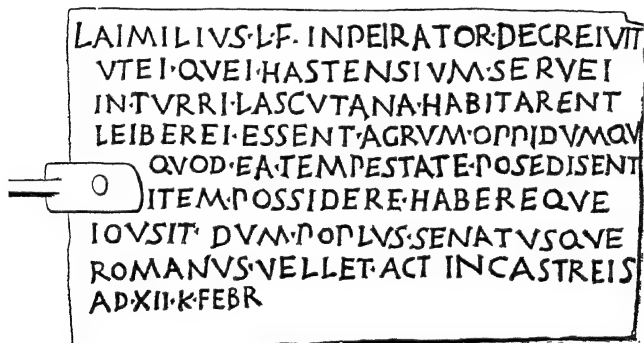 LAIMILIVS·L·F·INPEIRATOR·DECREIVIT
VTEI·QVEI·HASTENSIVM·SERVEI
IN·TVRRI·LASCVTANA·HABITARENT
LEIBEREI·ESSENT·AGRVM·OPPIDVMQV
QVOD·EA·TEMPESTATE·POSEDISENT
ITEM·POSSIDERE·HABEREQVE
IOVSIT·DVM·POPLVS·SENATVSQVE
ROMANVS·VELLET·ACT·INCASTREIS
AD·XII·K·FEBR